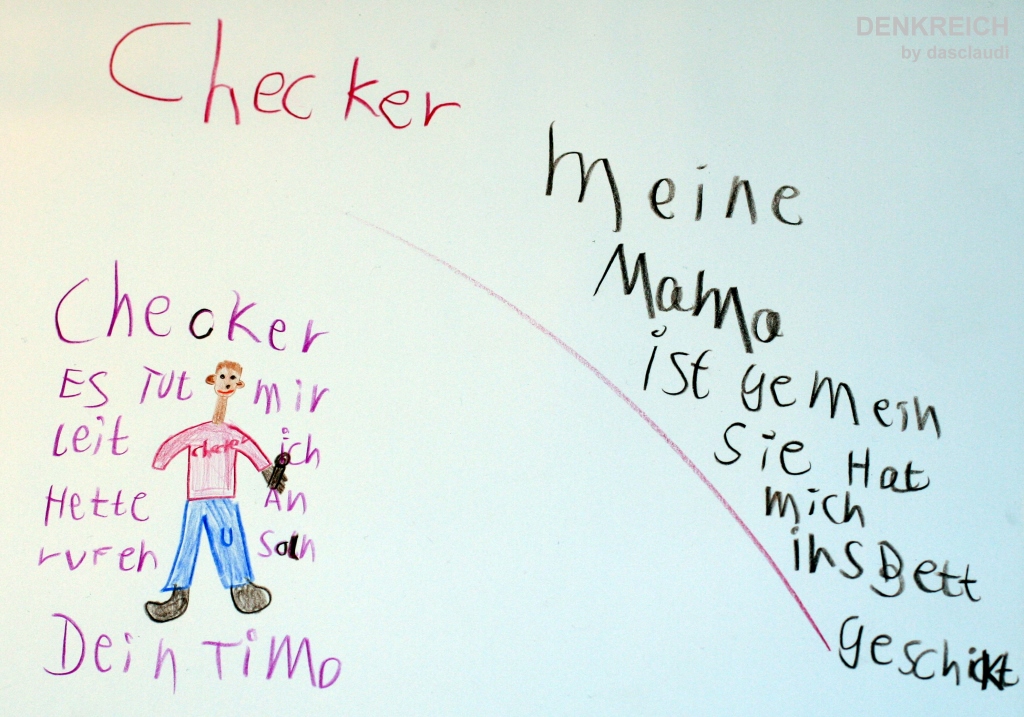 DENKREICH
by dasclaudi
Checker
Checker
ES TUT mir
Leit ich
Hette An
rufen Soln
Dein TiMo
checker
Meine
MaMa
ist gemein
Sie Hat
mich
ins Bett
geschickt